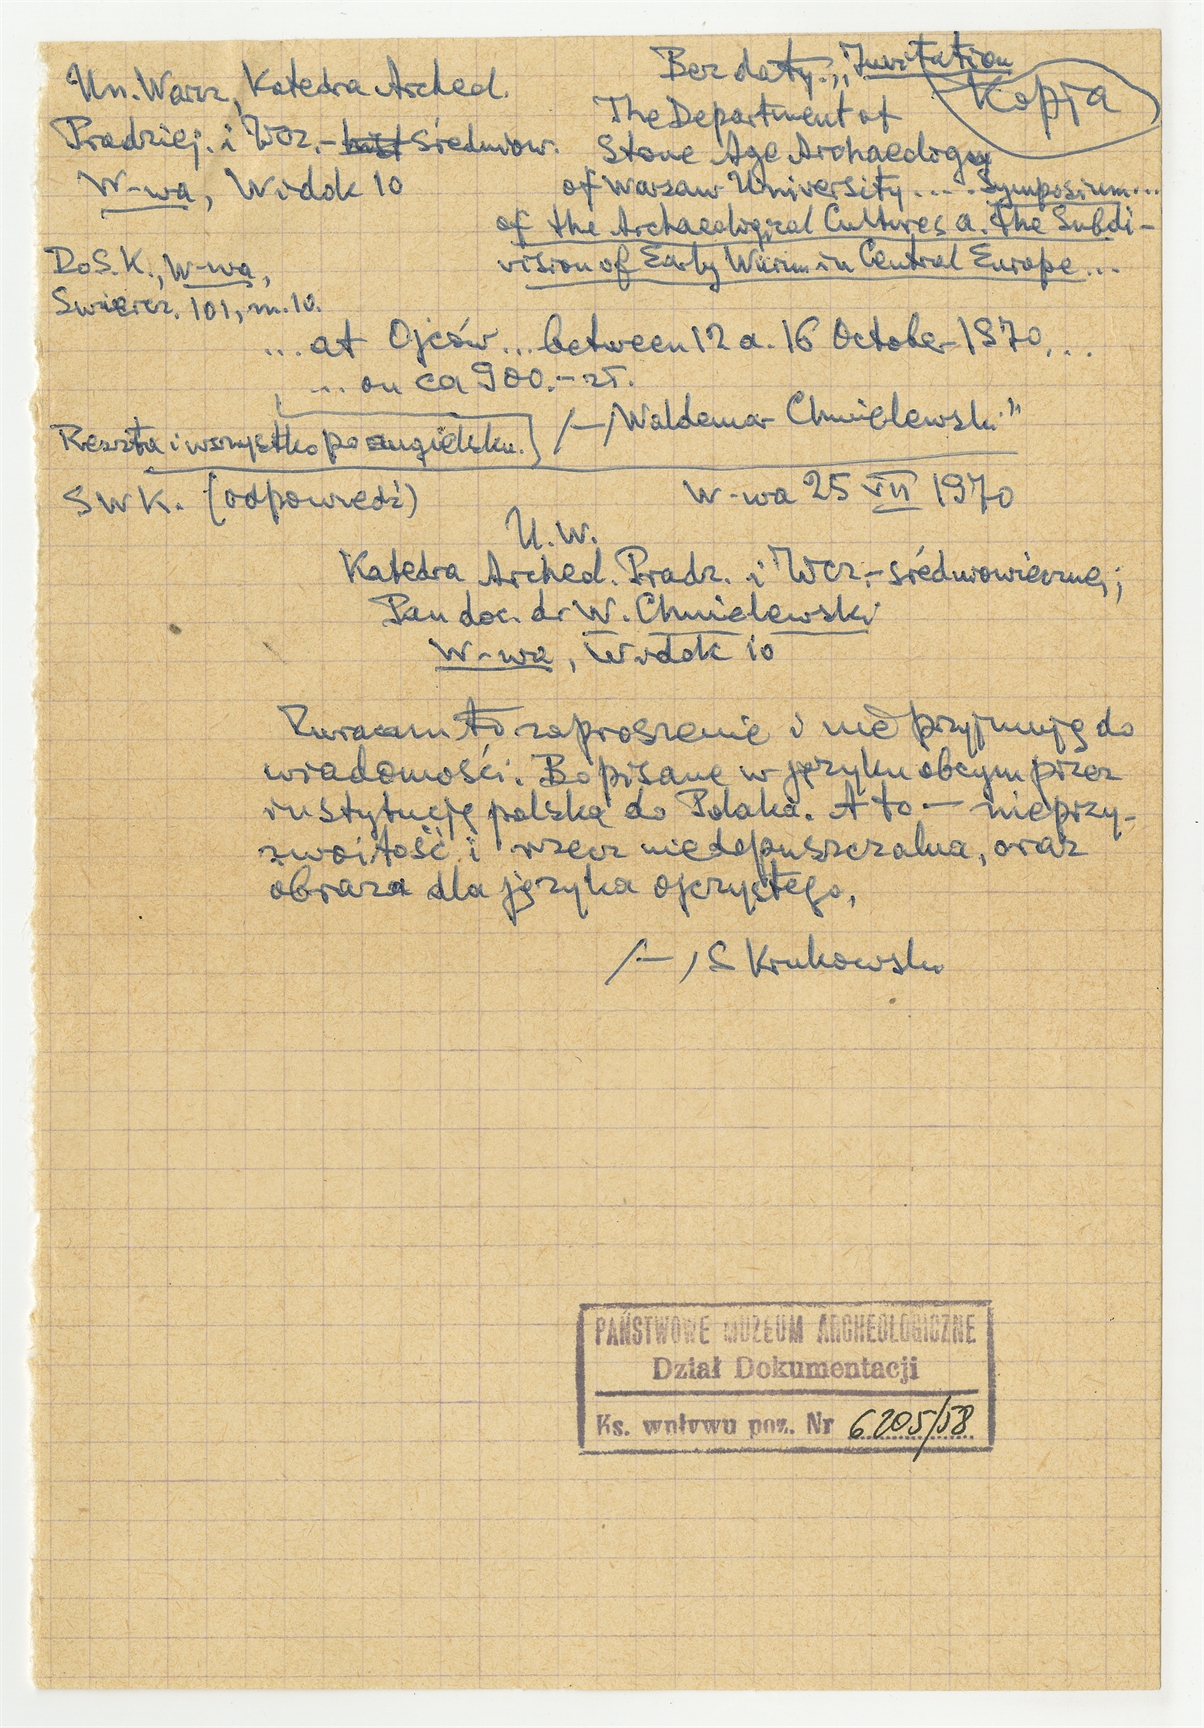 Un. Warsz, Katedra Archeol.
Pradziej. i Wcz.- średniow.
W-wa, Widok 10
Bez daty: „Invitation
Kopja
The Department of
Stone Age Archaeology
of Warsaw University .... Symposium...
of the Archaeological Cultures a. the Subdi-
vision of Early Würm in Central Europe...
Do S. K., W-wa,
Świercz. 101, m. 10.
...at Ojców ... between 12 a. 16 October 1970...
... on ca 900.- zł.
/—/ Waldemar Chmielewski"
Reszta i wszystko po angielsku.
SWK. (odpowiedź)
W-wa 25 VII 1970
U. W.
Katedra Archeol. Pradz. i Wcz.-średniowiecznej;
Pan doc. dr W. Chmielewski
W-wa, Widok 10
Zwracam to zaproszenie i nie przyjmuję do
wiadomości. Bo pisane w języku obcym przez
instytucję polską do Polaka. A to — nieprzy-
zwoitość i rzecz niedopuszczalna, oraz
obraza dla języka ojczystego,
/—/ S Krukowski
PAŃSTWOWE MUZEUM ARCHEOLOGICZNE
Dział Dokumentacji
Ks. wpływu poz. Nr 6205/58